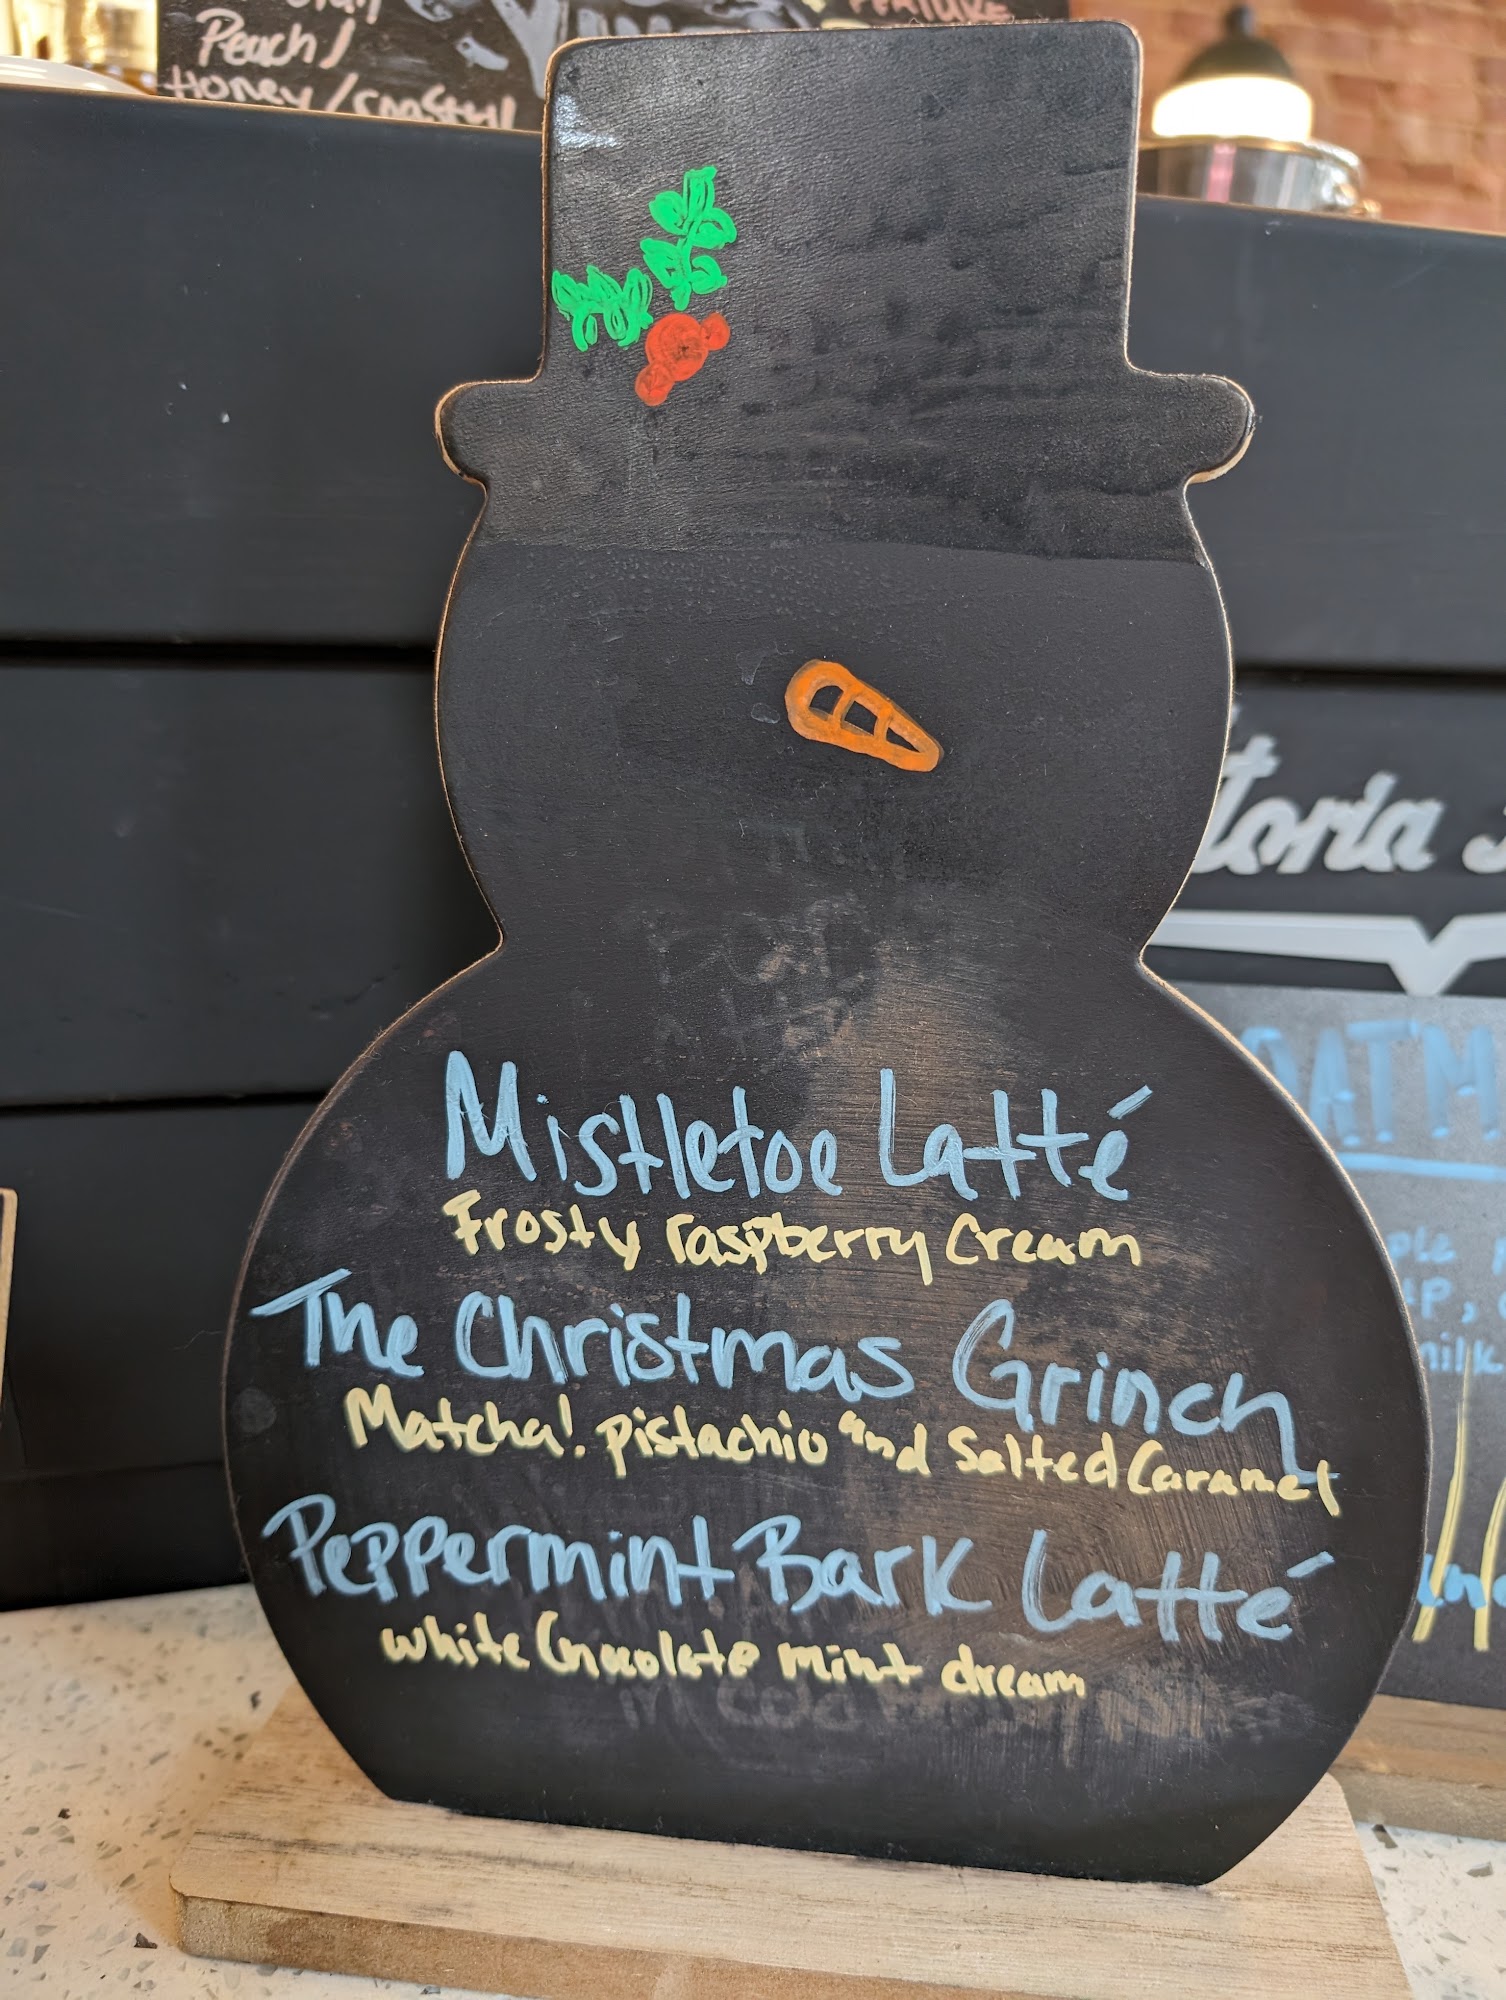 Peach/
Honey/
FEATURE
Mistletoe Latté
Frosty raspberry Cream
The Christmas Grinch
Matcha!. pistachio and Salted Caramel
Peppermint Bark Latté
white Chocolate mint dream
toria
OATM
milk